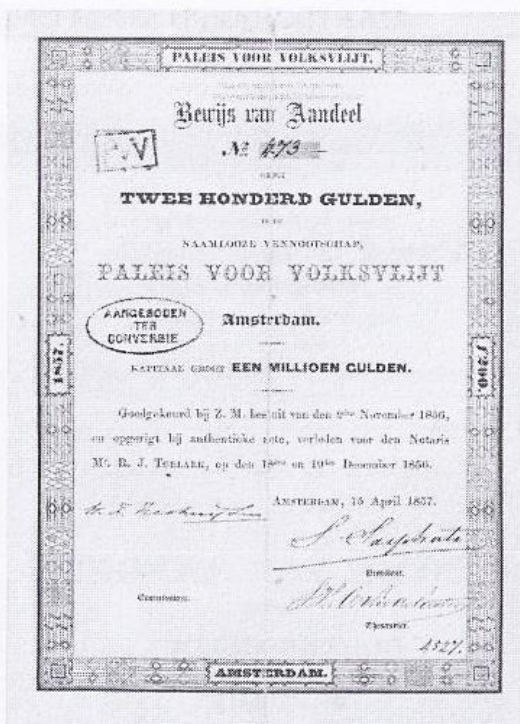 PALEIS VOOR VOLKSVLIJT.
Bewijs van Aandeel
No 473
GROOT
TWEE HONDERD GULDEN,
IN DE
NAAMLOOZE VENNOOTSCHAP,
PALEIS VOOR VOLKSVLIJT
AANGEBODEN
TER
CONVERSIE
Amsterdam.
KAPITAAL GROOT EEN MILLIOEN GULDEN.
Goedgekeurd bij Z. M. besluit van den November 1856,
en opgerigt bij authentieke acte, verleden voor den Notaris
Mr. R. J. op den 18den en 19den December 1856.
AMSTERDAM, 15 April 1857.
S Sarphati
Directeur.
Commissaris.
Thesaurier.
4527.
1857.
ƒ200.
AMSTERDAM.